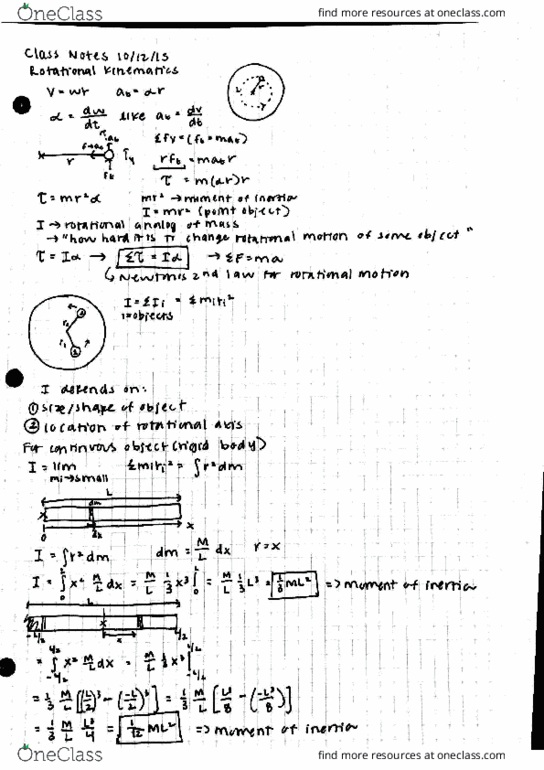 OneClass
find more resources at oneclass.com
Class Notes 10/12/15
Rotational Kinematics
V = wr    at = αr
α = dw/dt like at = dv/dt
Σfy = (ft = mat)
r
ft
rft = matr
τ = m(αr)r
τ = mr²α    mr² → moment of inertia
I = mr² (point object)
I → rotational analog of mass
→ "how hard it is to change rotational motion of some object"
τ = Iα → Στ = Iα → ΣF = ma
↳ Newton's 2nd law for rotational motion
I = ΣIi = Σmiri²
i=objects
r2 2
r1 2
I depends on:
① size/shape of object
② location of rotational axis
For continuous object (rigid body)
I = lim Σmiri² = ∫r²dm
mi→small
L
dm
0 dx x
I = ∫r²dm    dm = M/L dx    r = x
I = ∫₀ᴸ x² M/L dx = M/L 1/3 x³ |₀ᴸ = M/L 1/3 L³ = 1/3 ML² => moment of inertia
L
x
-L/2 x L/2
= ∫ x² M/L dx = M/L 1/3 x³ |
-L/2 L/2
= 1/3 M/L [(L/2)³ - (-L/2)³] = 1/3 M/L [L³/8 - (-L³/8)]
= 1/3 M/L L³/4 = 1/12 ML² => moment of inertia
OneClass
find more resources at oneclass.com